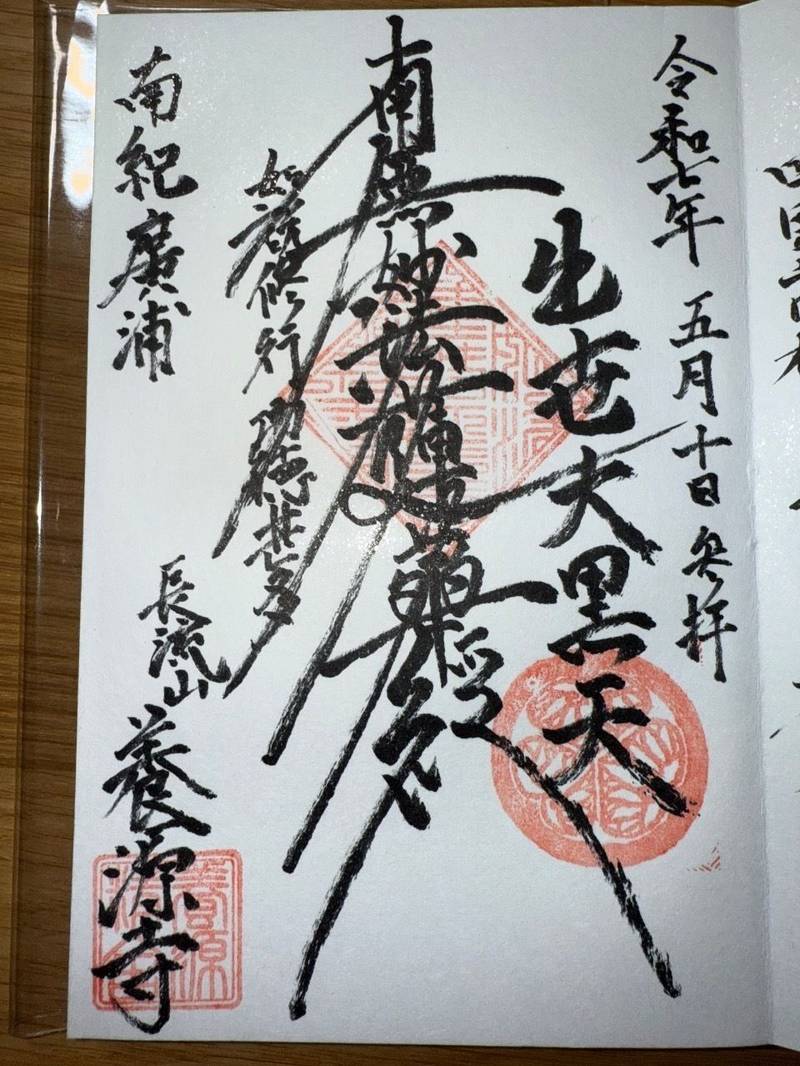 令和七年 五月十日 参拝
出世大黒天
南無妙法蓮華経
如説修行 功徳甚多
南紀廣浦
長流山
養源寺